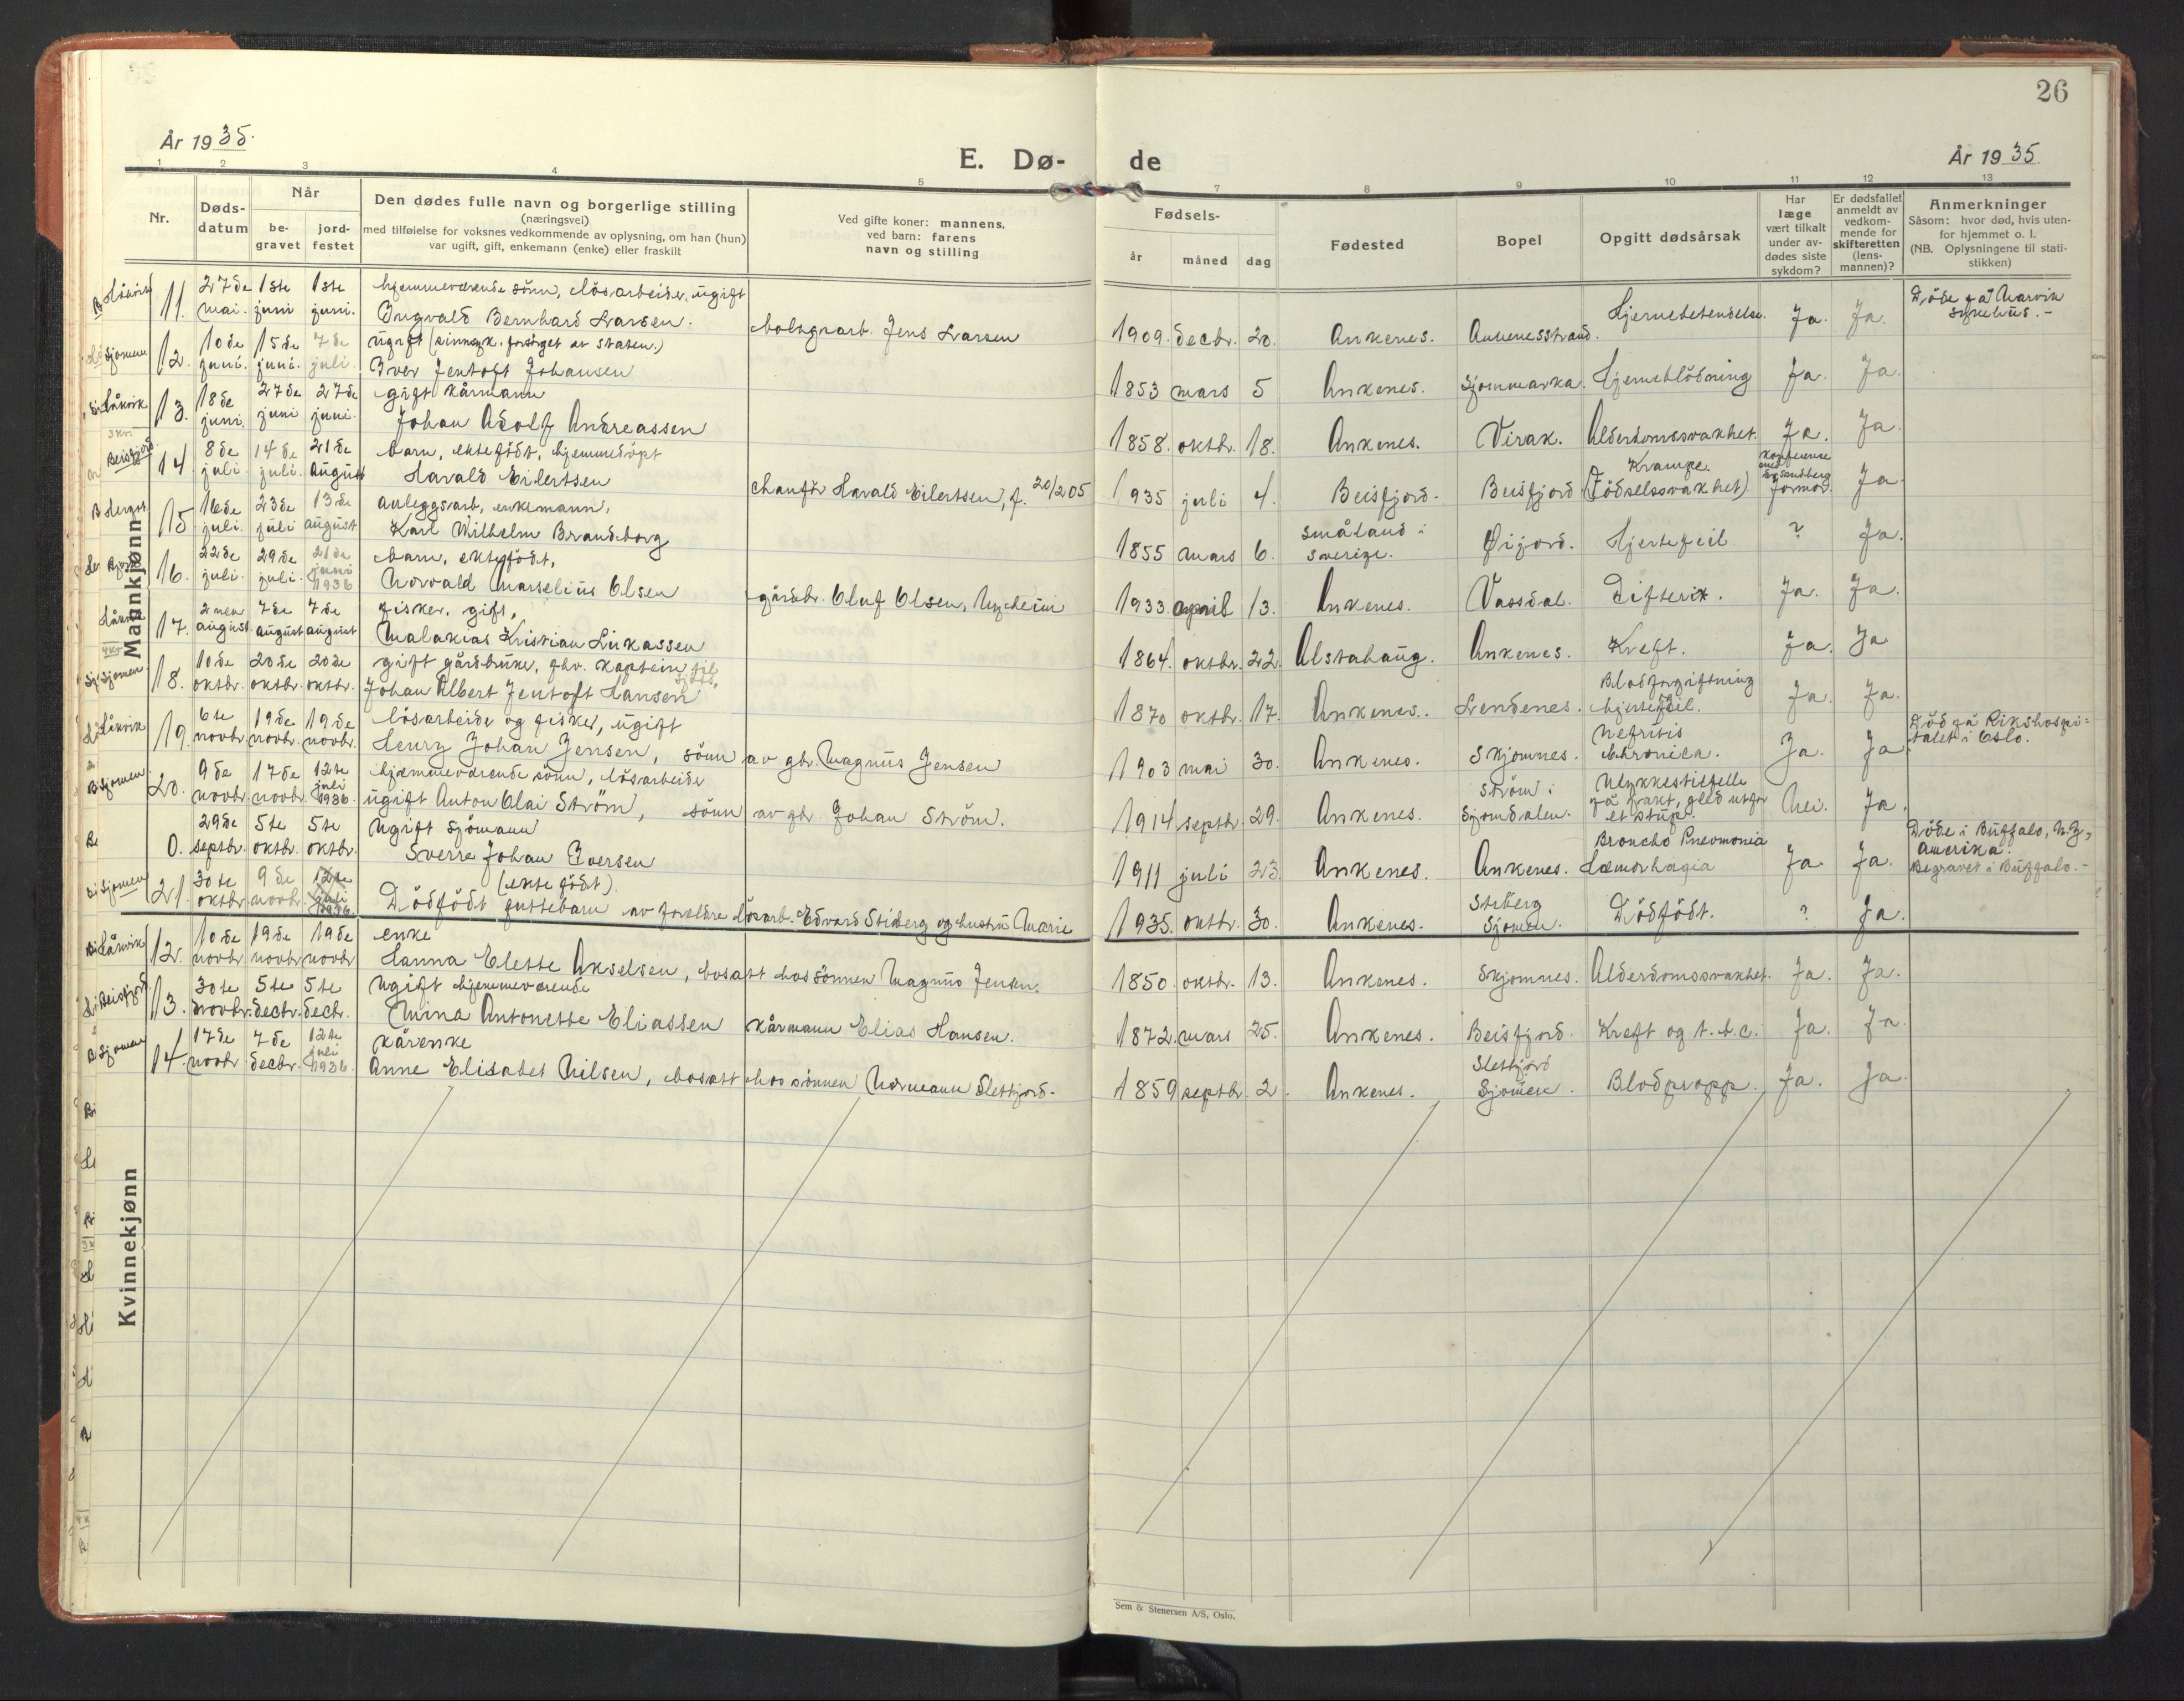 26
År 1935.
E. Dø-
de
År 1935
1 2 3 4 5 6 7 8 9 10 11 12 13
Nr.
Døds-
datum
Når
be-
gravet
jord-
festet
Den dødes fulle navn og borgerlige stilling
(næringsvei)
med tilføielse for voksnes vedkommende av oplysning, om han (hun)
var ugift, gift, enkemann (enke) eller fraskilt
Ved gifte koner: mannens,
ved barn: farens
navn og stilling
Fødsels-
år
måned
dag
Fødested
Bopel
Opgitt dødsårsak
Har
læge
vært tilkalt
under av-
dødes siste
sykdom?
Er dødsfallet
anmeldt av
vedkom-
mende for
skifteretten
(lens-
mannen)?
Anmerkninger
Såsom: hvor død, hvis uten-
for hjemmet o. l.
(NB. Oplysningene til stati-
stikken)
Mannkjønn
Håkvik 11. 27de mai. 1ste juni 1ste juni. hjemmeværende sönn, lösarbeider, ugift
Ingvald Bernhard Larsen. bolsgrarb. Jens Larsen 1909. decbr. 20. Ankenes. Ankenesstrand. Hjernebetendelse. Ja. Ja. Döde på Narvik
sykehus. -
Sjomen 12. 10de juni. 15de juni. 7de juli. ugift (sinnsyk. forsörget av staten.)
Iver Jentoft Johansen 1853 mars 5 Ankenes. Sjommarka. Hjerneblödning Ja. Ja.
Håkvik 13. 18de juni. 27de juni 27de juni. gift kårmann
Johan Adolf Andreassen 1858. oktbr. 18. Ankenes. Virak. Alderdomssvakhet. Ja. Ja.
Beisfjord. 14. 8de juli. 14de juli. 21de august barn, ektefödt, hjemmedöpt
Harald Eilertsen chauför Harald Eilertsen, f. 20/2 05 1935 juli 4. Beisfjord. Beisfjord Krampe.
(Födselssvakhet). Ja.
15. 16de juli. 23de juli 13de august anleggsarb, enkemann,
Karl Wilhelm Brandborg 1855 mars 6. Småland i
Sverige. Øijord. Hjertefeil ? Ja.
16. 22de juli. 29de juli. 21de juni 1936 barn, ektefödt,
Norvald Marselius Olsen gårdbr. Oluf Olsen, Nyheim 1933. april 13. Ankenes. Vassdal. Difterit. Ja. Ja.
Håkvik 17. 2nen august 7de august 7de august fisker, gift,
Malakias Kristian Lukassen 1864. oktbr. 22. Alstahaug. Ankenes. Kreft. Ja. Ja
Sjomen 18. 10de oktbr. 20de oktbr. 20de oktbr. gift gårdbruker, fhv. kaptein til
sjöss,
Johan Albert Jentoft Hansen 1870 oktbr. 17. Ankenes. Lendenes. Blodforgiftning
hjertefeil. Ja. Ja.
Håkvik 19. 6te novbr. 19de novbr. 19de novbr. lösarbeider og fisker, ugift
Henry Johan Jensen, sönn av gbr. Magnus Jensen 1903 mai 30. Ankenes. Skjomnes. Nefritis
chronica. Ja. Ja Död på Rikshospi-
talet i Oslo.
Sjomen 20. 9de novbr. 17de novbr. 12te juli 1936. hjemmeværende sönn, lösarbeider
ugift Anton Olai Ström, sönn av gbr. Johan Ström. 1914 septbr. 29. Ankenes. Ström i
Sjomdalen. Ulykkestilfelle
på jakt, gled utfor
et stup. Nei. Ja.
0. 29de septbr. 5te oktbr. 5te oktbr. Ugift sjömann
Sverre Johan Iversen 1911 juli 23. Ankenes. Ankenes. Broncho Pneumonia
Hæmorhagia Ja Ja. Döde i Buffalo, N.Y,
Amerika.
Begravet i Buffalo. -
Sjomen 21. 30te oktbr. 9de novbr. 12te juli 1936. (ekte födt).
Dödfödt guttebarn av foreldre lösarb. Edvard Stiberg og hustru Marie 1935. oktbr. 30. Ankenes. Stiberg
Sjomen. Dödfödt. ? Ja.
Kvinnekjønn
Håkvik 12. 10de novbr. 19de novbr. 19de novbr enke
Hanna Elette Akselsen, bosatt hos sönnen Magnus Jensen. 1850. oktbr. 13. Ankenes. Skjomnes. Alderdomssvakhet. Ja. Ja.
Beisfjord 13. 30te novbr. 5te decbr. 5te decbr. Ugift hjemmeværende
Nina Antonette Eliassen kårmann Elias Hansen. 1872. mars 25. Ankenes. Beisfjord. Kreft og t.b.c. Ja. Ja
Sjomen 14. 17de novbr 7de decbr. 12te juli 1936. kårenke
Anne Elisabet Nilsen, bosatt hos sönnen Normann Slettfjord. 1859 septbr. 2. Ankenes. Slettfjord
Sjomen. Blodpropp. Ja. Ja.
Sem & Stenersen A/S, Oslo.